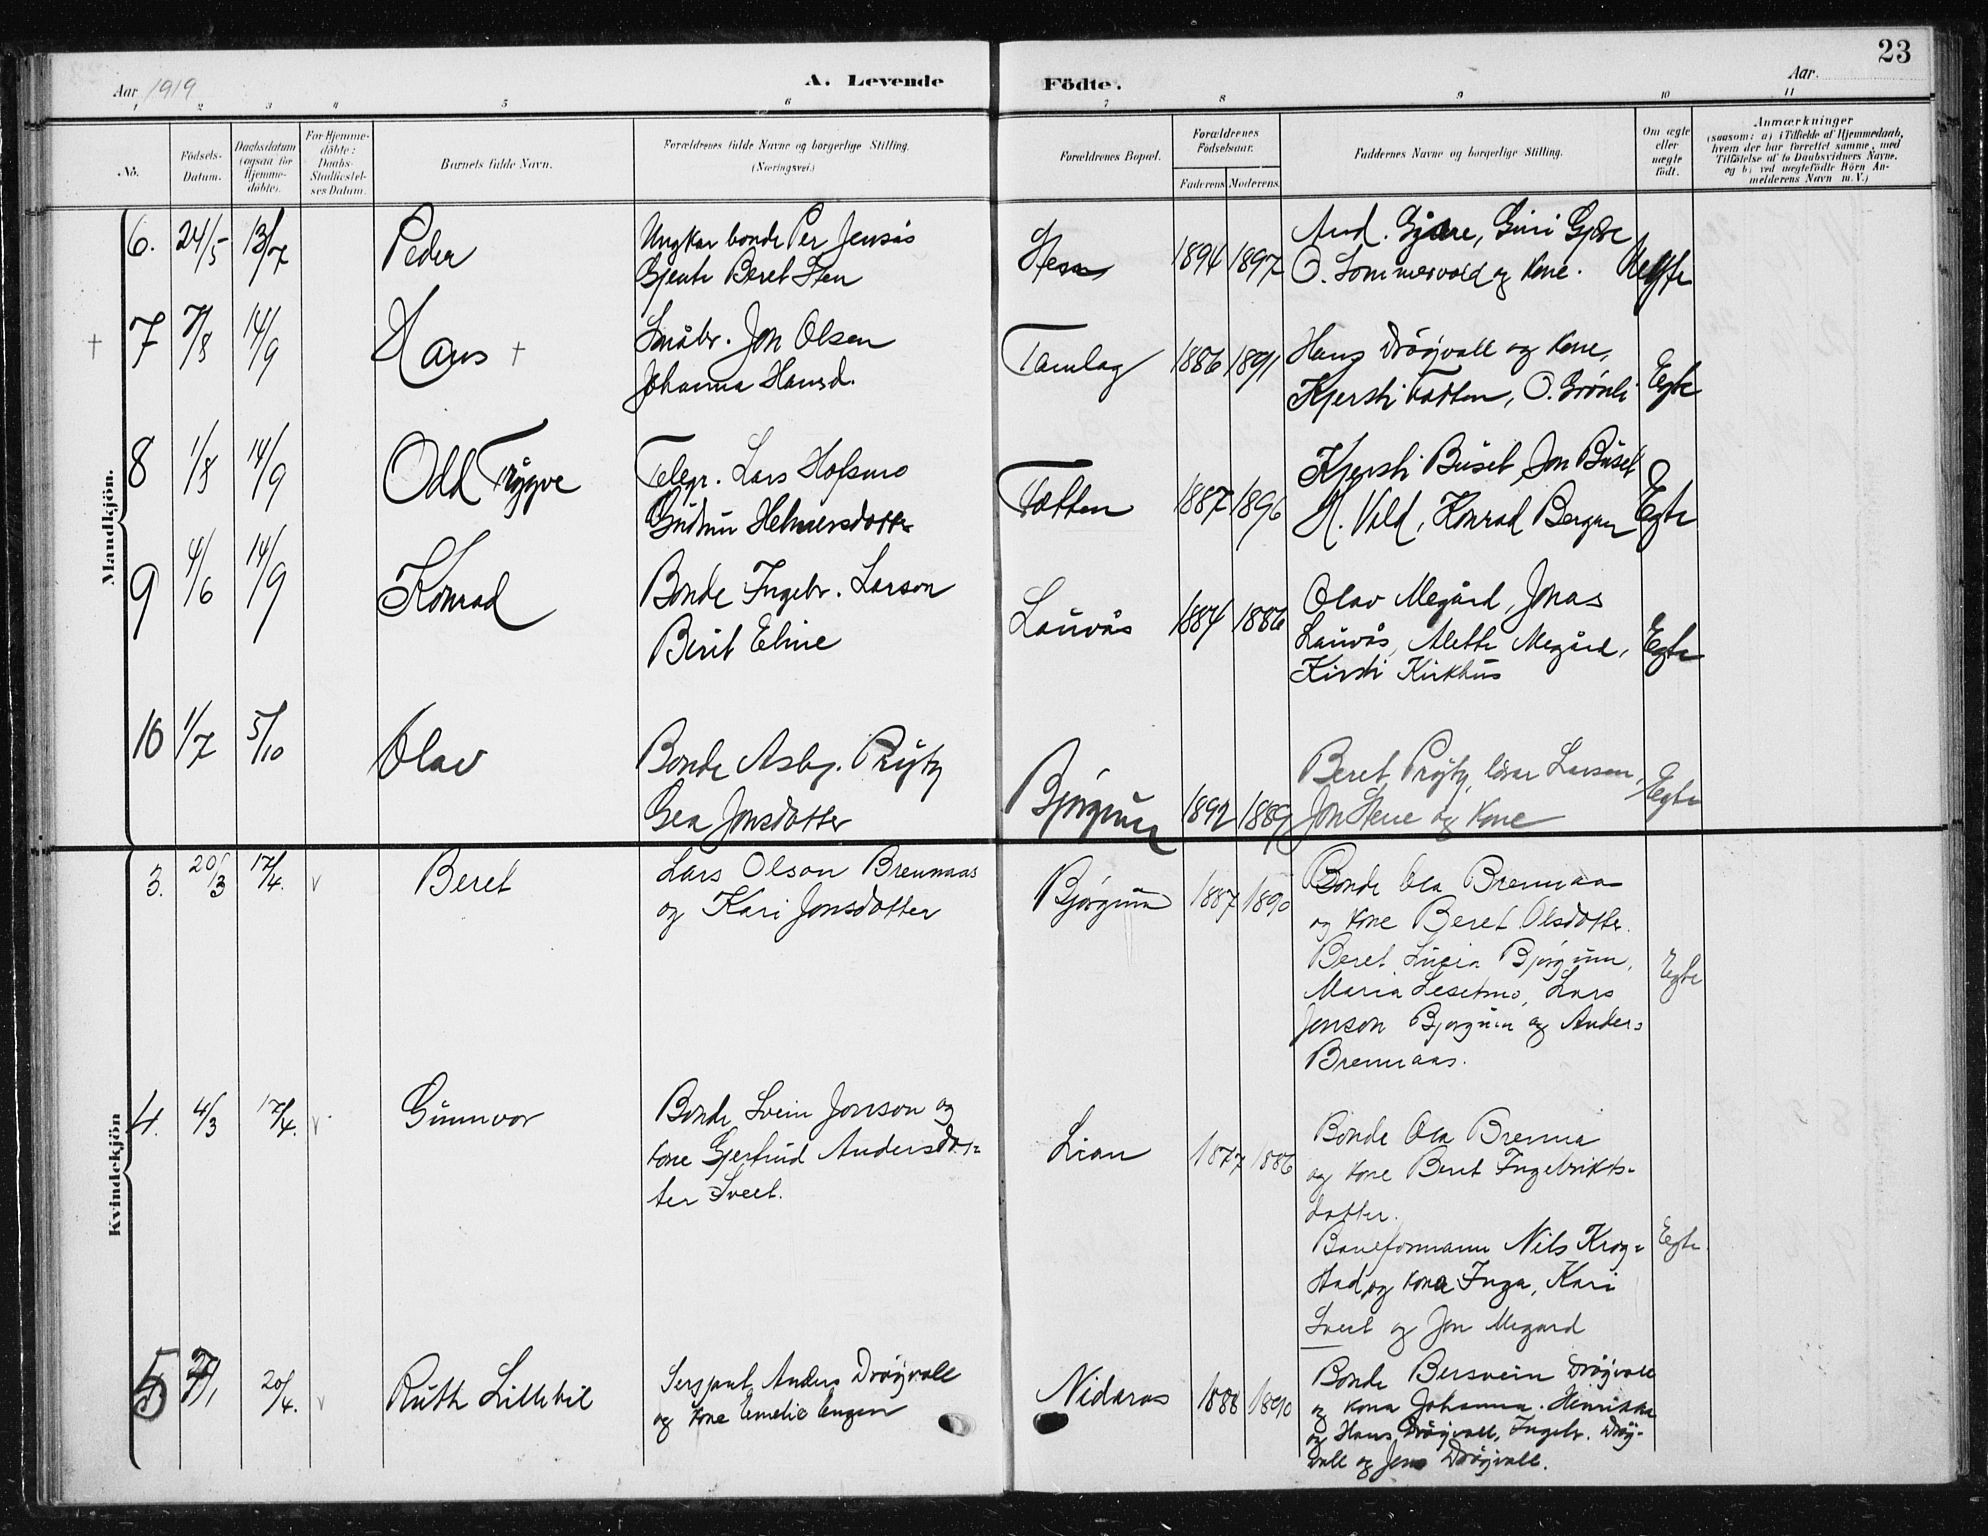 23
Aar 1919
A. Levende Födte.
Aar.
1 2 3 4 5 6 7 8 9 10 11
No.
Födsels-
Datum.
Daabsdatum
(ogsaa for
Hjemme-
döbte).
For Hjemme-
döbte:
Daabs-
Stadfæstel-
ses Datum.
Barnets fulde Navn.
Forældrenes fulde Navne og borgerlige Stilling.
(Næringsvei.)
Forældrenes Bopæl.
Forældrenes
Födselsaar.
Faderens Moderens.
Faddernes Navne og borgerlige Stilling.
Om ægte
eller
uægte
födt.
Anmærkninger
(saasom: a) i Tilfælde af Hjemmedaab,
hvem der har forrettet samme, med
Tilföielse af to Daabsvidners Navne,
og b) ved uægtefödte Börn An-
melderens Navn m. V.)
Mandkjön.
6. 24/5 13/7 Peder
Ungkar bonde Per Jensås
Gjente Beret Sten
1894 1897
And. Gjære, Guri Gjære
O. Sommervold og kone.
† 7 14/9 Hans †
Småbr. Jon Olsen
Johanna Hansd.
Tamlag 1886 1891
Hans Drøyvall og kone,
Kjersti Tøtten, O. Grønli
Egte
8 14/9 Odd Trygve
Telegr. Lars Hofsmo
Gudrun Helmersdotter
Tøtten 1887 1896
Kjersti Buset, Jon Buset
H. Vold, Konrad Bergan
Egte
9 4/6 14/9 Konrad
Bonde Ingebr. Larson
Berit Eline
Lauvås 1884 1886
Olav Megård, Jonas
Lauvås, Alette Megård,
Kirsti Kirkhus
Egte
10 1/7 5/10 Olav
Bonde Asbj. Prøytz
Gea Jonsdotter
Bjørgum 1892 1889
Beret Prøytz, Larsen,
Jon Stene og kone
Egte
Kvindekjön
3. 20/3 17/4. v Beret
Lars Olson Brennaas
og Kari Jonsdotter
Bjørgum 1887 1890
Bonde Ola Brennaas
og kone Beret Olsdotter.
Beret Lusia Bjørgum,
Maria Lesetmo, Lars
Jonson Bjørgum og Anders
Brennaas.
Egte
4. 4/3 17/4. v Gunnvor
Bonde Svein Jonson og
kone Gjertrud Andersdot=
ter Sveet.
Lian 1877 1886
Bonde Ola Brenna
og kone Beret Ingebrikts-
dotter.
Baneformann Nils Krog=
stad og kona Inga, Kari
Sveet og Jon Megard
Egte.
5 20/4. v Ruth Lillebil
Sersjant Anders Drøyvoll
og kone Emelie Engen
Nidaros 1888 1890
Bonde Bersvein Drøyvoll
og kona Johanna. Henrikka
og Hans Drøyvoll, Ingebr. Drøy-
voll og Jens Drøyvoll.